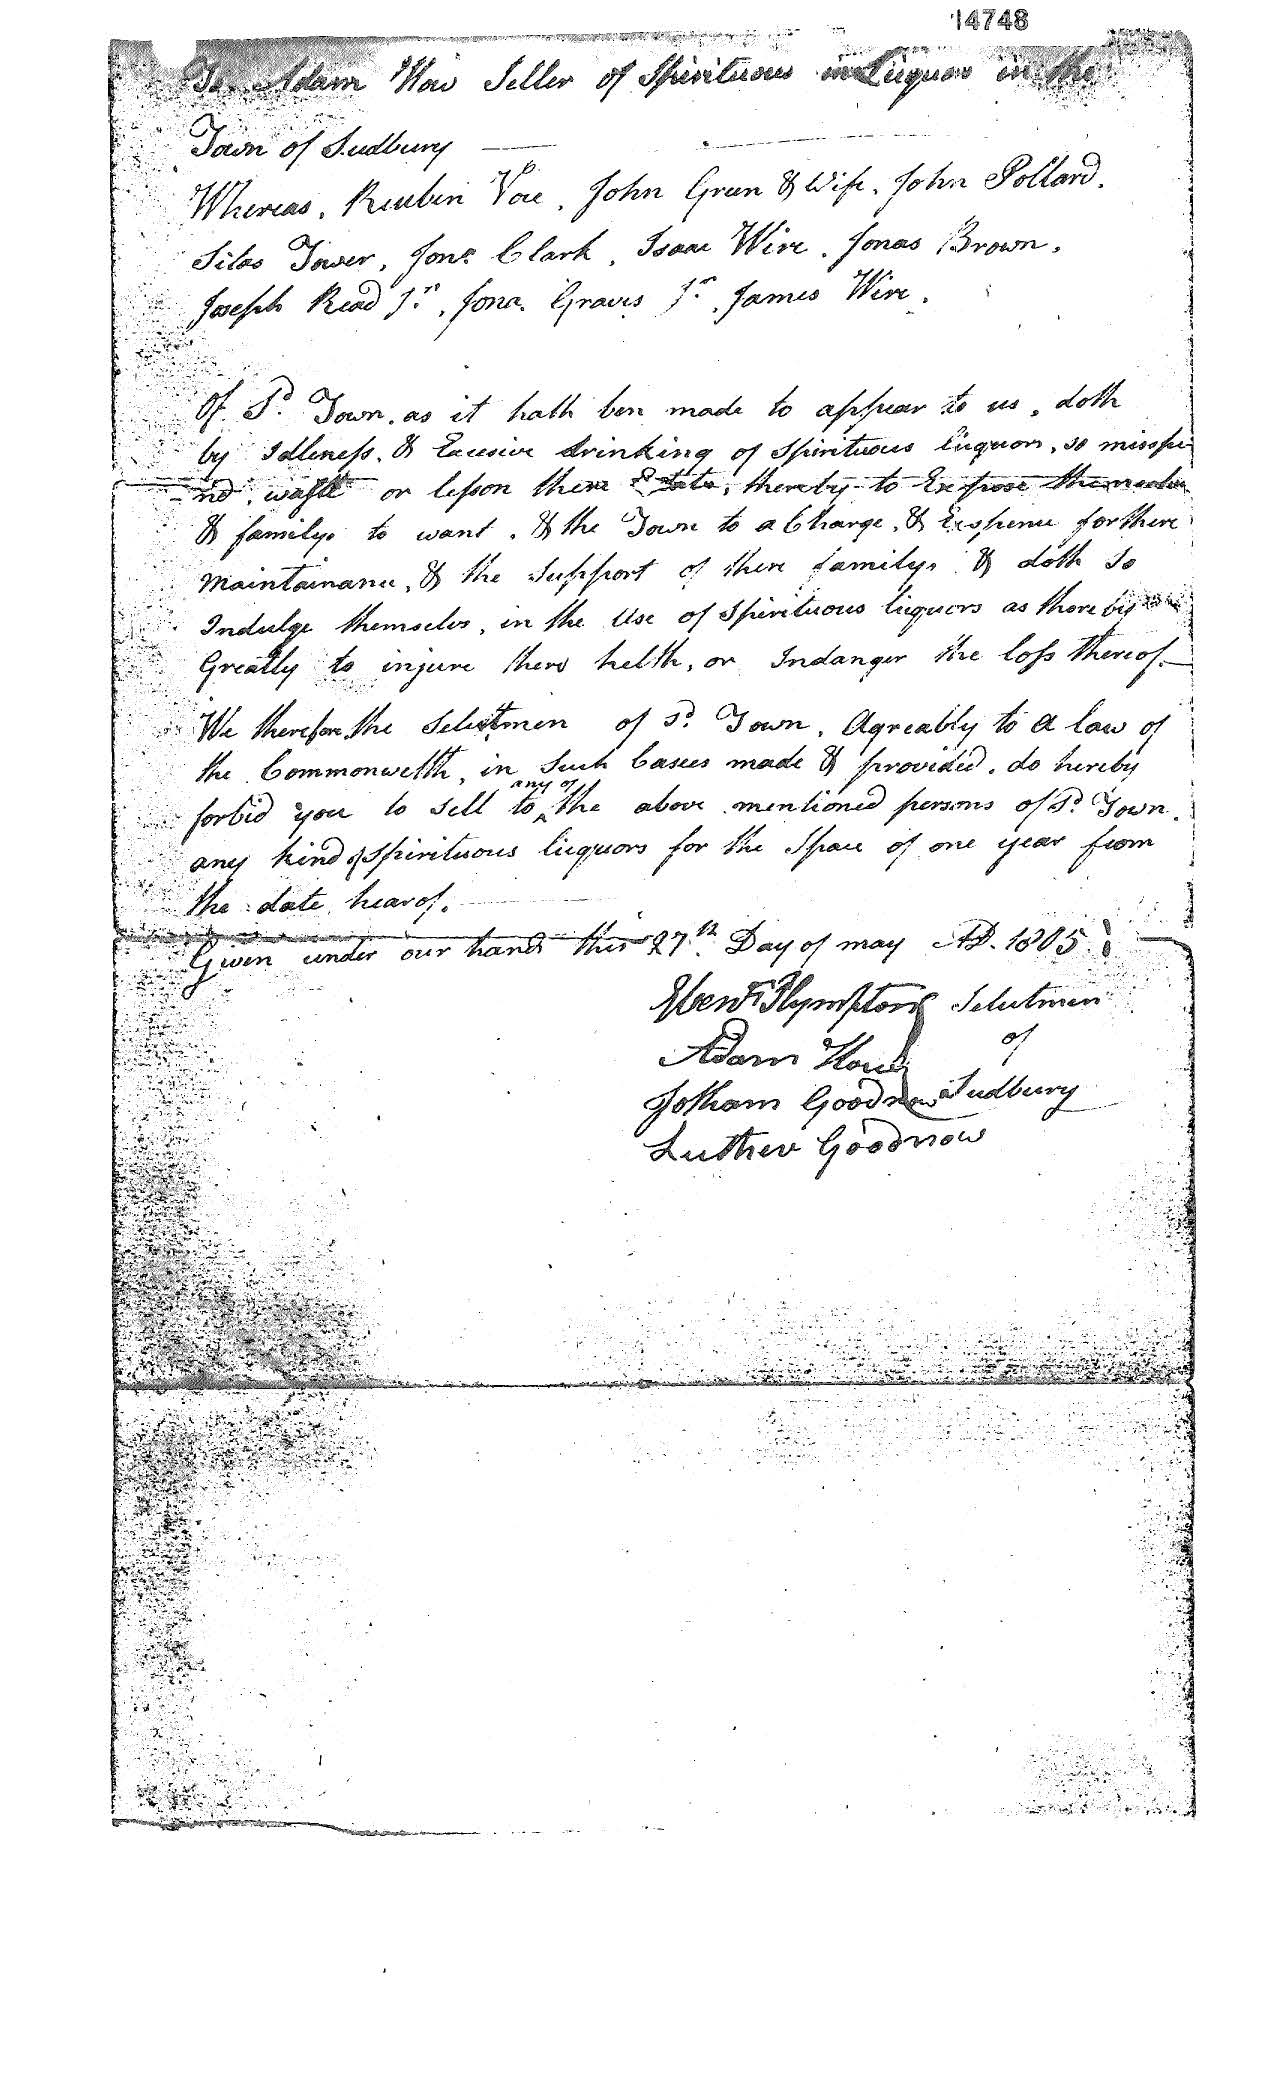 14748
To Adam How Seller of Spirituous Liquors in the
Town of Sudbury
Whereas, Reuben Vose, John Green & Wife, John Pollard,
Silas Tower, Jona. Clark, Isaac Wire, Jonas Brown,
Joseph Read Jr., Jona. Graves Jr., James Wire,
Of Sd. Town, as it hath ben made to appear to us, doth
by Idleness, & Excesive drinking of Spirituous liquors, so misspe
nd, wast or lesson there Estate, thereby to Exspose themselves
& familys to want, & the Town to a Charge, & Exspence for there
Maintainance, & the Support of there familys & doth so
Indulge themselves, in the Use of Spirituous liquors as thereby
Greatly to injure there helth, or Indanger the loss thereof.
We therefore, the Selectmen of Sd. Town, Agreably to a law of
the Commonwelth, in Such Casees made & provided, do hereby
any of
forbid you to Sell to the above mentioned persons of Sd. Town,
any kind of Spirituous liquors for the Space of one year from
the date hearof.
Given under our hands this 27th. Day of may AD. 1805
Plympton Selectmen
Adam How of
Jotham Goodnow Sudbury
Luther Goodnow